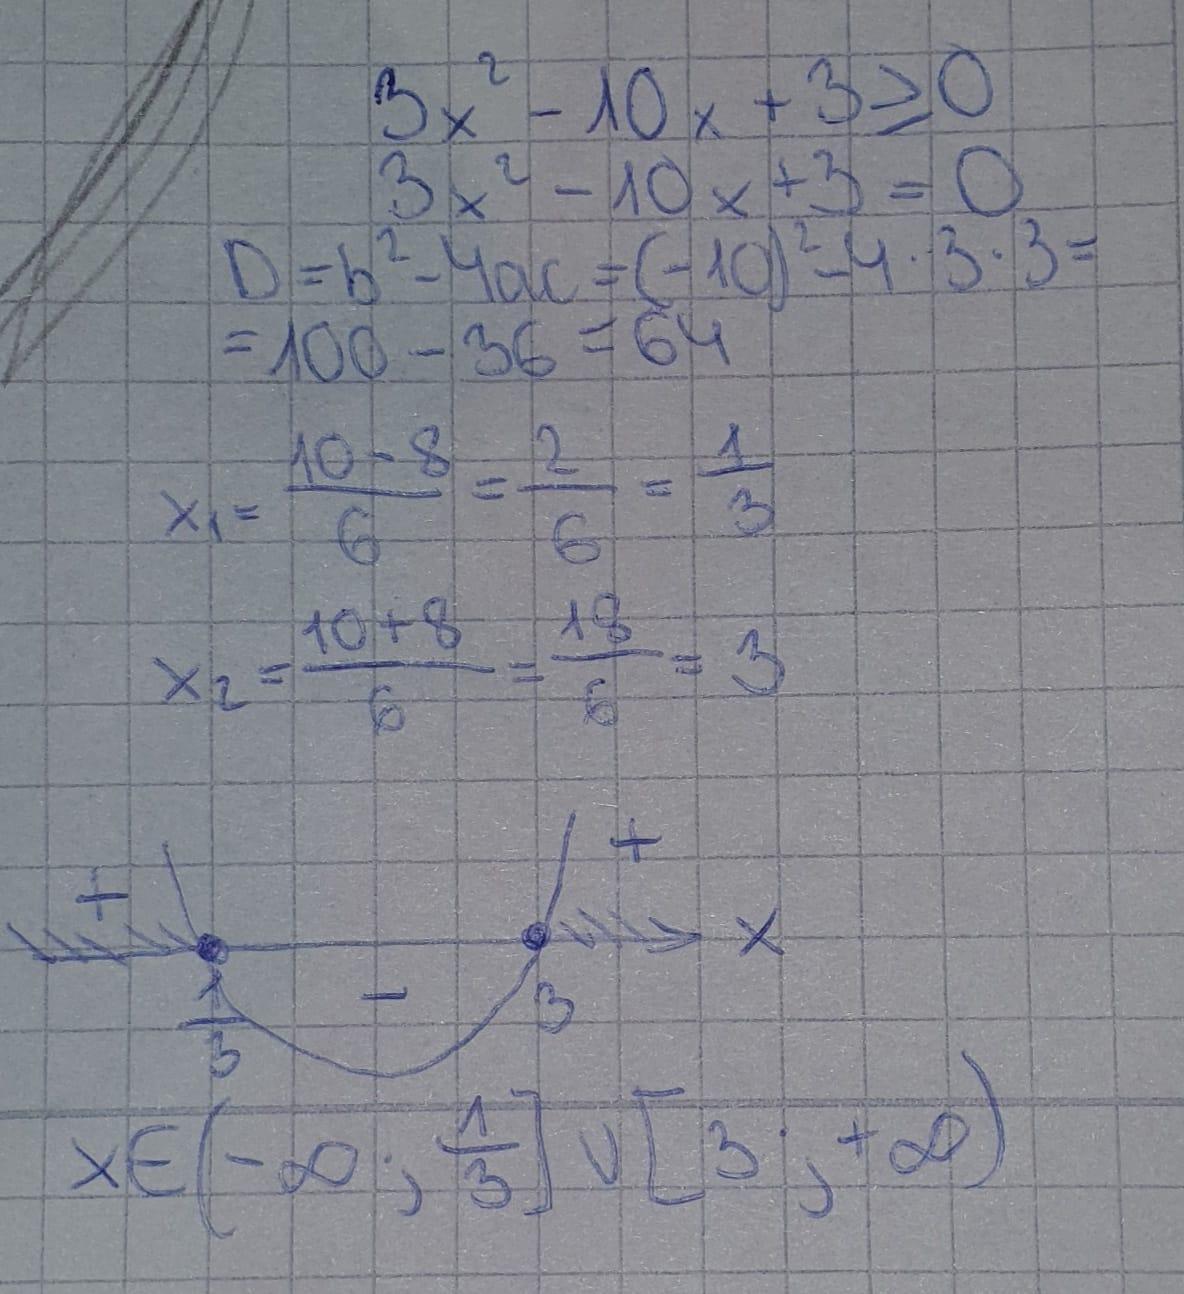 3x² - 10x + 3 ≥ 0
3x² - 10x + 3 = 0
D = b² - 4ac = (-10)² - 4 · 3 · 3 =
= 100 - 36 = 64
x₁ = \frac{10-8}{6} = \frac{2}{6} = \frac{1}{3}
x₂ = \frac{10+8}{6} = \frac{18}{6} = 3
+ +
x
\frac{1}{3} - 3
x ∈ (-∞; \frac{1}{3}] ∪ [3; +∞)